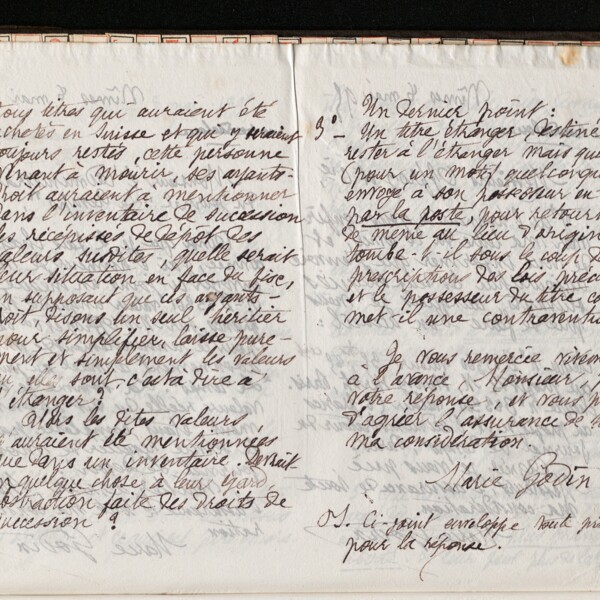 tous titres qui auraient été
achetés en Suisse et qui y seraient
toujours restés, cette personne
venant à mourir, ses ayants-
droit auraient à mentionner
dans l'inventaire de succession
les récépissés de dépôt des
valeurs susdites, quelle serait
leur situation en face du fisc,
en supposant que ces ayants-
droit, disons un seul héritier
pour simplifier, laisse pure-
ment et simplement les valeurs
où elles sont, c'est à dire à
l'étranger?
Alors les dites valeurs
auraient été mentionnées
que dans un inventaire. Devrait-
on quelque chose à leur égard,
abstraction faite des droits de
succession ?
Un dernier point :
3° – Un titre étranger, destiné
rester à l'étranger mais que
(pour un motif quelconque
envoyé à son possesseur en
par la poste, pour retour
de même au lieu d'origin
tombe-t-il sous le coup d
prescriptions des lois préc
et le possesseur du titre co
met il une contraventi
Je vous remercie vivem
à l'avance, Monsieur,
votre réponse, et vous p
d'agréer l'assurance de
ma considération.
Marie Godin
P.S. Ci-joint enveloppe toute pr
pour la réponse.